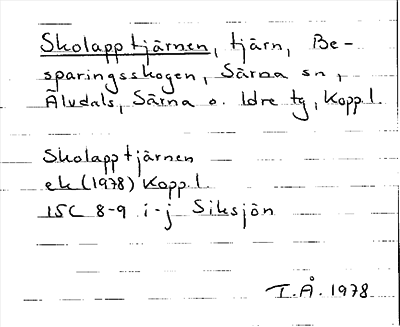 Skolapptjärnen, tjärn, Be-
sparingsskogen, Särna sn,
Älvdals, Särna o. Idre tg, Kopp l.
Skolapptjärnen
ek (1978) Kopp. l.
15C 8-9 i-j Siksjön
T.Å. 1978